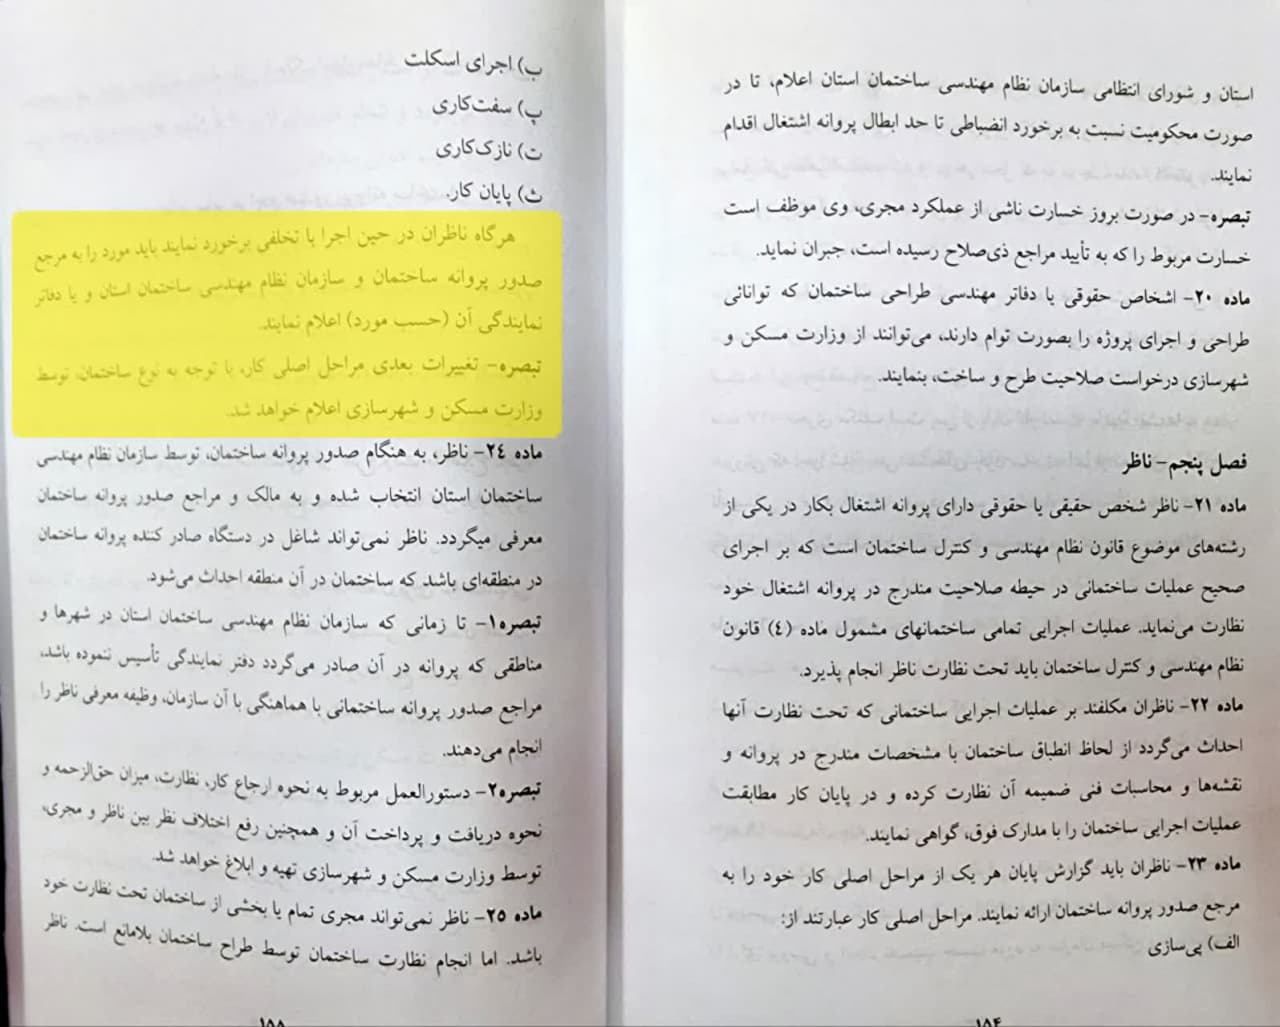 استان و شورای انتظامی سازمان نظام مهندسی ساختمان استان اعلام، تا در
صورت محکومیت نسبت به برخورد انضباطی تا حد ابطال پروانه اشتغال اقدام
نمایند.
تبصره- در صورت بروز خسارت ناشی از عملکرد مجری، وی موظف است
خسارت مربوط را که به تأیید مراجع ذی‌صلاح رسیده است، جبران نماید.
ماده ۲۰- اشخاص حقوقی یا دفاتر مهندسی طراحی ساختمان که توانائی
طراحی و اجرای پروژه را بصورت توام دارند، می‌توانند از وزارت مسکن و
شهرسازی درخواست صلاحیت طرح و ساخت، بنمایند.
فصل پنجم- ناظر
ماده ۲۱- ناظر شخص حقیقی یا حقوقی دارای پروانه اشتغال بکار در یکی از
رشته‌های موضوع قانون نظام مهندسی و کنترل ساختمان است که بر اجرای
صحیح عملیات ساختمانی در حیطه صلاحیت مندرج در پروانه اشتغال خود
نظارت می‌نماید. عملیات اجرایی تمامی ساختمانهای مشمول ماده (٤) قانون
نظام مهندسی و کنترل ساختمان باید تحت نظارت ناظر انجام پذیرد.
ماده ۲۲- ناظران مکلفند بر عملیات اجرایی ساختمانی که تحت نظارت آنها
احداث می‌گردد از لحاظ انطباق ساختمان با مشخصات مندرج در پروانه و
نقشه‌ها و محاسبات فنی ضمیمه آن نظارت کرده و در پایان کار مطابقت
عملیات اجرایی ساختمان را با مدارک فوق، گواهی نمایند.
ماده ۲۳- ناظران باید گزارش پایان هر یک از مراحل اصلی کار خود را به
مرجع صدور پروانه ساختمان ارائه نمایند. مراحل اصلی کار عبارتند از:
الف) پی‌سازی
۱۵۴
ب) اجرای اسکلت
پ) سفت‌کاری
ت) نازک‌کاری
ث) پایان کار.
هرگاه ناظران در حین اجرا با تخلفی برخورد نمایند باید مورد را به مرجع
صدور پروانه ساختمان و سازمان نظام مهندسی ساختمان استان و یا دفاتر
نمایندگی آن (حسب مورد) اعلام نمایند.
تبصره- تغییرات بعدی مراحل اصلی کار، با توجه به نوع ساختمان، توسط
وزارت مسکن و شهرسازی اعلام خواهد شد.
ماده ٢٤- ناظر، به هنگام صدور پروانه ساختمان، توسط سازمان نظام مهندسی
ساختمان استان انتخاب شده و به مالک و مراجع صدور پروانه ساختمان
معرفی میگردد. ناظر نمی‌تواند شاغل در دستگاه صادر کننده پروانه ساختمان
در منطقه‌ای باشد که ساختمان در آن منطقه احداث می‌شود.
تبصره۱- تا زمانی که سازمان نظام مهندسی ساختمان استان در شهرها و
مناطقی که پروانه در آن صادر می‌گردد دفتر نمایندگی تأسیس ننموده باشد،
مراجع صدور پروانه ساختمانی با هماهنگی با آن سازمان، وظیفه معرفی ناظر را
انجام می‌دهند.
تبصره۲- دستورالعمل مربوط به نحوه ارجاع کار، نظارت، میزان حق‌الزحمه و
نحوه دریافت و پرداخت آن و همچنین رفع اختلاف نظر بین ناظر و مجری،
توسط وزارت مسکن و شهرسازی تهیه و ابلاغ خواهد شد.
ماده ۲۵- ناظر نمی‌تواند مجری تمام یا بخشی از ساختمان تحت نظارت خود
باشد. اما انجام نظارت ساختمان توسط طراح ساختمان بلامانع است. ناظر
۱۵۵